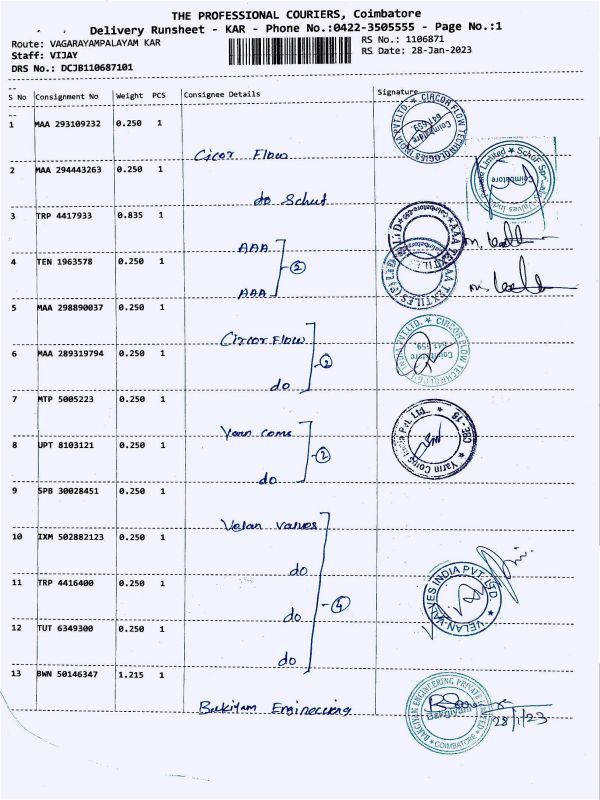 THE PROFESSIONAL COURIERS, Coimbatore
Delivery Runsheet - KAR - Phone No.:0422-3505555 - Page No.:1
Route: VAGARAYAMPALAYAM KAR
RS No.: 1106871
Staff: VIJAY
RS Date: 28-Jan-2023
DRS No.: DCJB110687101
S No Consignment No Weight PCS Consignee Details Signature
1 MAA 293109232 0.250 1
Cicor Flow
2 MAA 294443263 0.250 1
do Schuf
3 TRP 4417933 0.835 1
AAA
4 TEN 1963578 0.250 1
2
AAA
5 MAA 298890037 0.250 1
Circor Flow
6 MAA 289319794 0.250 1
do
7 MTP 5005223 0.250 1
Yarn coms
8 UPT 8103121 0.250 1
2
do
9 SPB 30028451 0.250 1
Velan values
10 IXM 502882123 0.250 1
do
11 TRP 4416400 0.250 1
4
do
12 TUT 6349300 0.250 1
do
13 BWN 50146347 1.215 1
Bakiyam Engineering
CIRCOR FLOW TECHNOLOGIES INDIA PVT.LTD.
Coimbatore 641 659.
Coimbatore
AAA TEXTILES (P) LTD
AAA TEXTILES (P) LTD
CIRCOR FLOW TECHNOLOGIES INDIA PVT.LTD.
Coimbatore 641 659.
CBE - 18
VELAN VALVES INDIA PVT. LTD.
BAKGIYAM ENGINEERING PRIVATE LIMITED
Bakgiyam
COIMBATORE
28/1/23